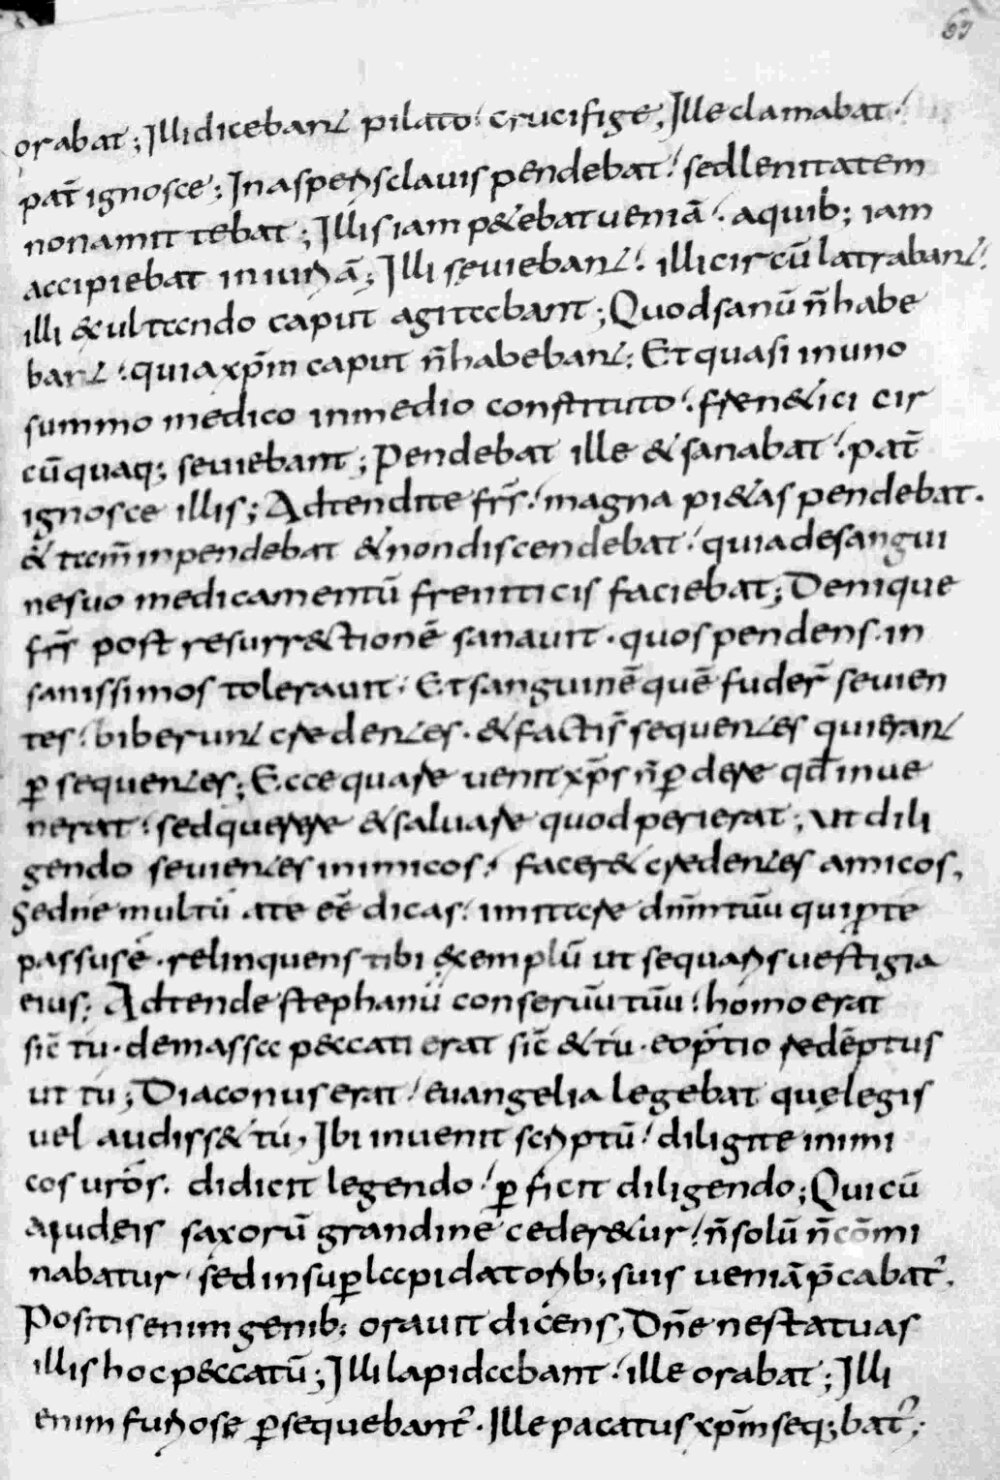 69
orabat; Illi dicebant pilato crucifige; Ille clamabat
pat̄ ignosce; In asperis clavis pendebat sed lenitatem
non amittebat; Illis iam p&ebat ueniā. a quib; iam
accipiebat iniuriā; Illi sęuiebant. illi circū latrabant.
illi & ultando caput agitabant; Quod sanū n̄ habe
bant. quia xp̄m caput n̄ habebant: Et quasi in uno
summo medico in medio constituto. fren&ici cir
cū quaq; seuiebant; Pendebat ille & sanabat. pat̄
ignosce illis; Adtendite fr̄s. magna pi&as pendebat.
& tam̄ in pendebat & non discendebat. quia de sangui
ne suo medicamentū freniticis faciebat; Denique
fr̄s post resurr&ctionē sanauit. quos pendens in
sanissimos tolerauit. Et sanguinē quē fuder̄ seuien
tes. biberunt credentes. & factis̄ sequentes qui erant
ꝑsequentes; Ecce quare uenit xp̄s n̄ ꝑdere qd̄ inue
nerat. sed querere & saluare quod perierat; ut dili
gendo seuientes inimicos. facer& credentes amicos,
Sed ne multū a te eē dicas. imitare dn̄m tuū qui ꝓ te
passus ē. relinquens tibi exemplū ut sequaris uestigia
eius; Adtende stephanū conseruū tuū. homo erat
sic̄ tu. de massa peccati erat sic̄ & tu. eo p̄tio redēptus
ut tu; Diaconus erat. euangelia legebat quę legis
uel audiss& tu, Ibi inuenit scriptū. diligite inimi
cos uros̄. didicit legendo. ꝑficit diligendo; Qui cū
a iudeis saxorū grandine ceder&ur. n̄ solū n̄ cōmi
nabatur. sed insuꝑ lapidatorib; suis ueniā p̄cabat᷒.
Positis enim genib; orauit dicens, Dn̄e ne statuas
illis hoc peccatū; Illi lapidabant. ille orabat; Illi
enim furiose ꝑsequebant᷒. Ille pacatus xp̄m seq;bat᷒;